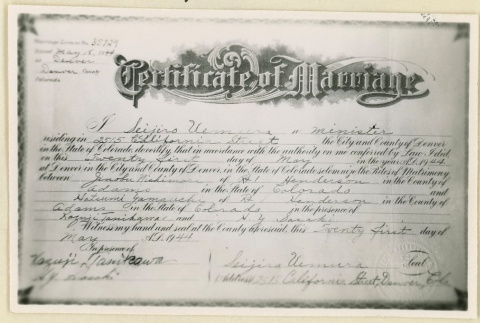 Marriage License No. 30729
Dated May 18, 1944
at Denver
Denver County
Colorado
Certificate of Marriage
I Seijiro Uemura a minister
residing in 2515 California Street the City and County of Denver
in the State of Colorado, do hereby, in accordance with the authority on me conferred by Law, I did
on this Twenty first day of May in the year A.D. 1944
at Denver in the City and County of Denver, in the State of Colorado solemnize the Rites of Matrimony
between of Henderson in the County of
Adams in the State of Colorado and
Hatsumi of Henderson in the County
Adams in the State of Colorado in the presence of
Kazuji Tanikawa and H Y Sasaki
Witness my hand and seal at the County aforesaid, this Twenty first day of
May A.D. 1944
In presence of
Kazuji Tanikawa
Seijiro Uemura Seal
H.Y. Sasaki
Address 2515 California Street, Denver, Colo